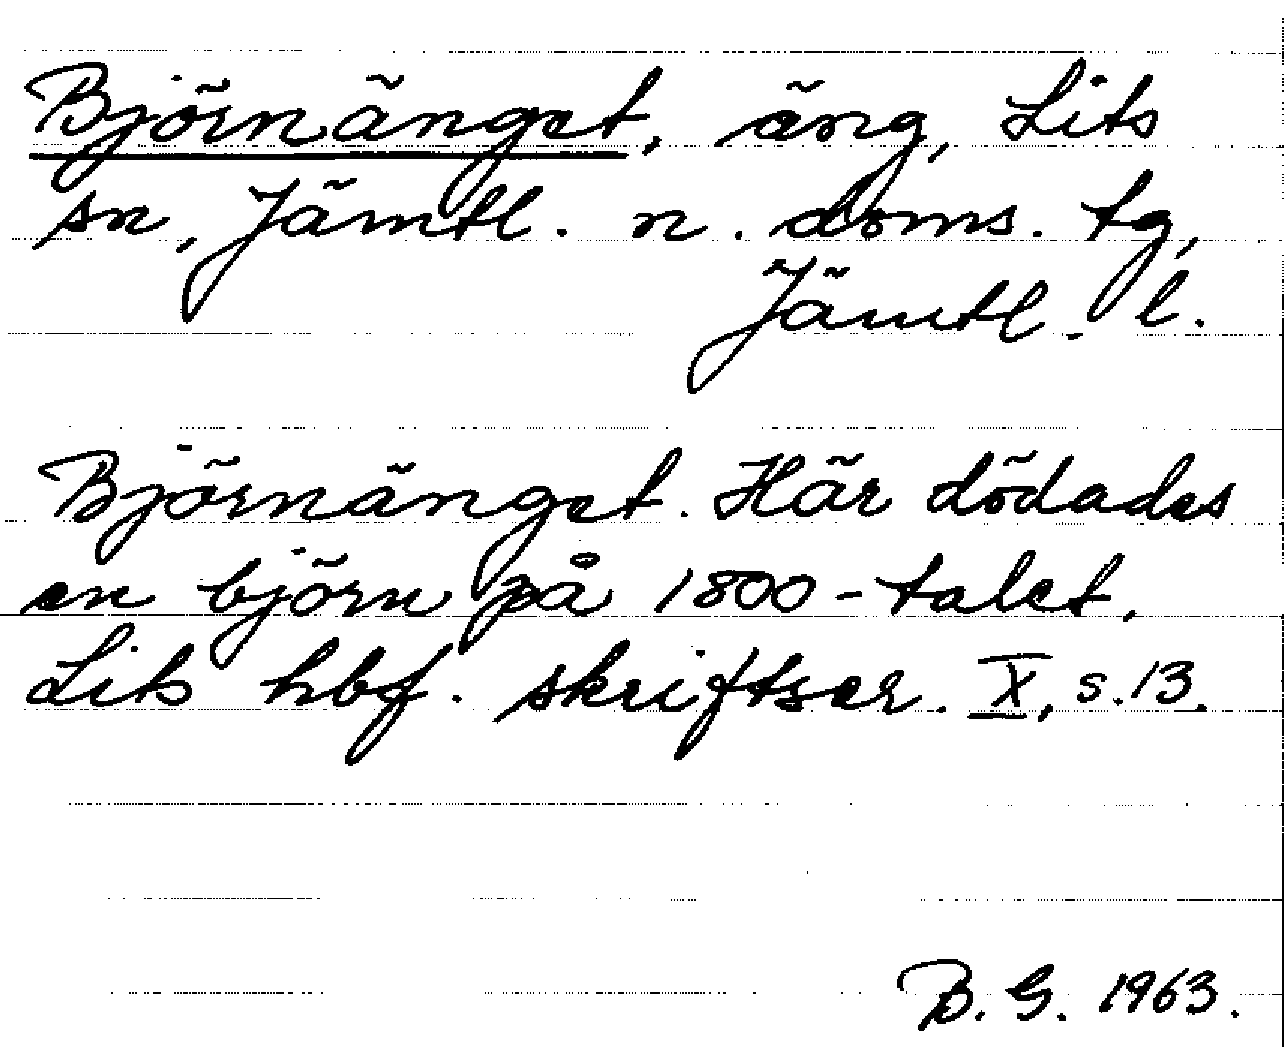 Björnänget, äng, Lits
sn, Jämtl. n. doms. tg,
Jämtl. l.
Björnänget. Här dödades
en björn på 1800-talet.
Lits hbf. skriftser. X, s. 13.
B. G. 1963.